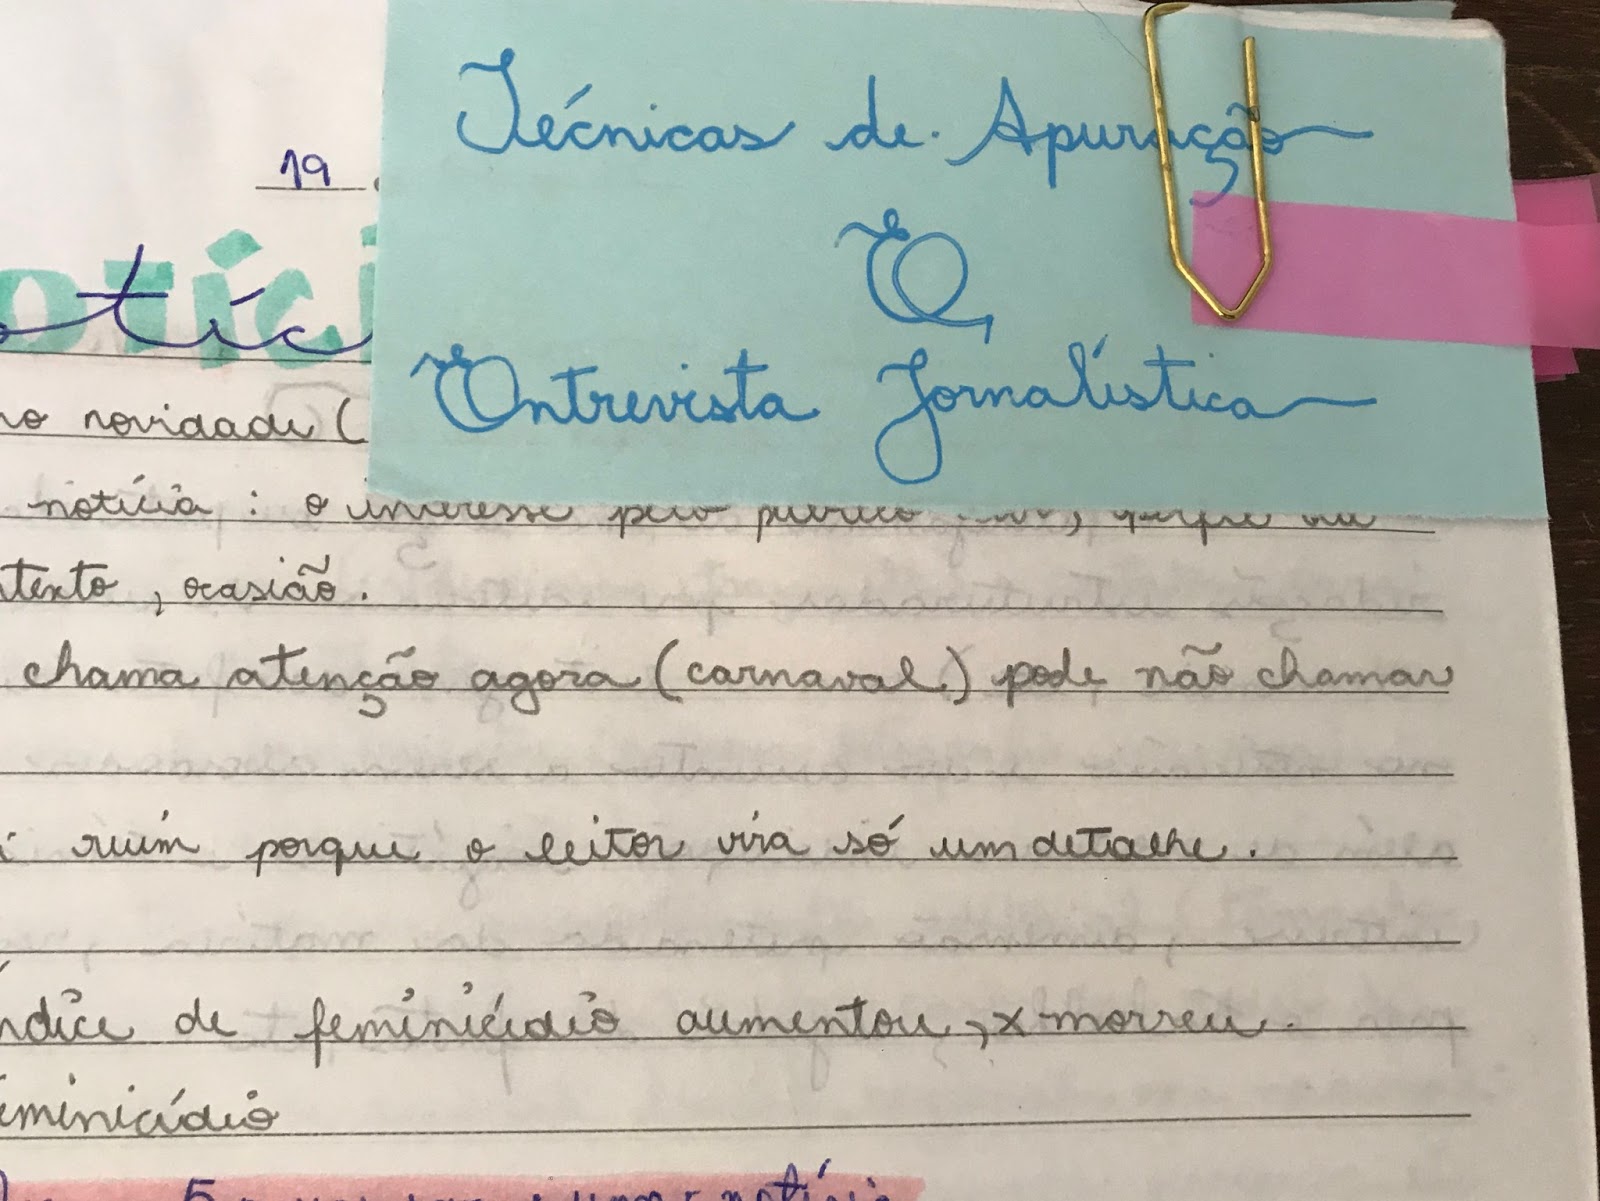 Técnicas de Apuração
E
Entrevista Jornalística
19
otíci
no novidade (
notícia : o interesse pelo público
texto , ocasião.
chama atenção agora (carnaval) pode não chamar
ruim porque o leitor via só um detalhe.
índice de feminicídio aumentou, x morreu.
feminicídio
notícia